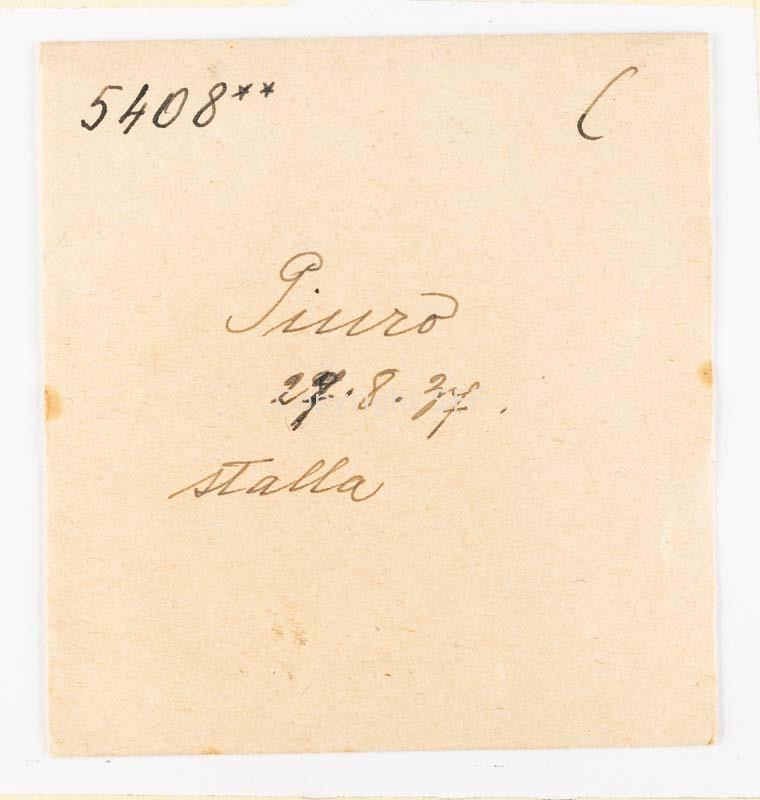 5408** C
Piuro
27.8.37.
stalla